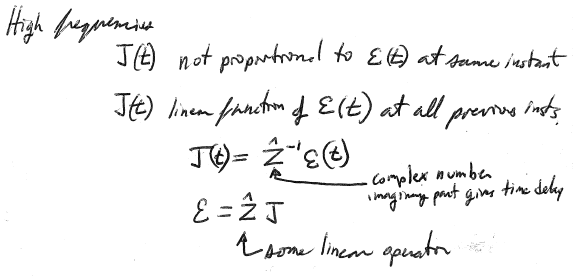 High frequencies
J(t) not proportional to ℰ(t) at same instant
J(t) linear function of ℰ(t) at all previous insts.
J(t) = Ẑ⁻¹ ℰ(t)
complex number
imaginary part gives time delay
ℰ = Ẑ J
some linear operator